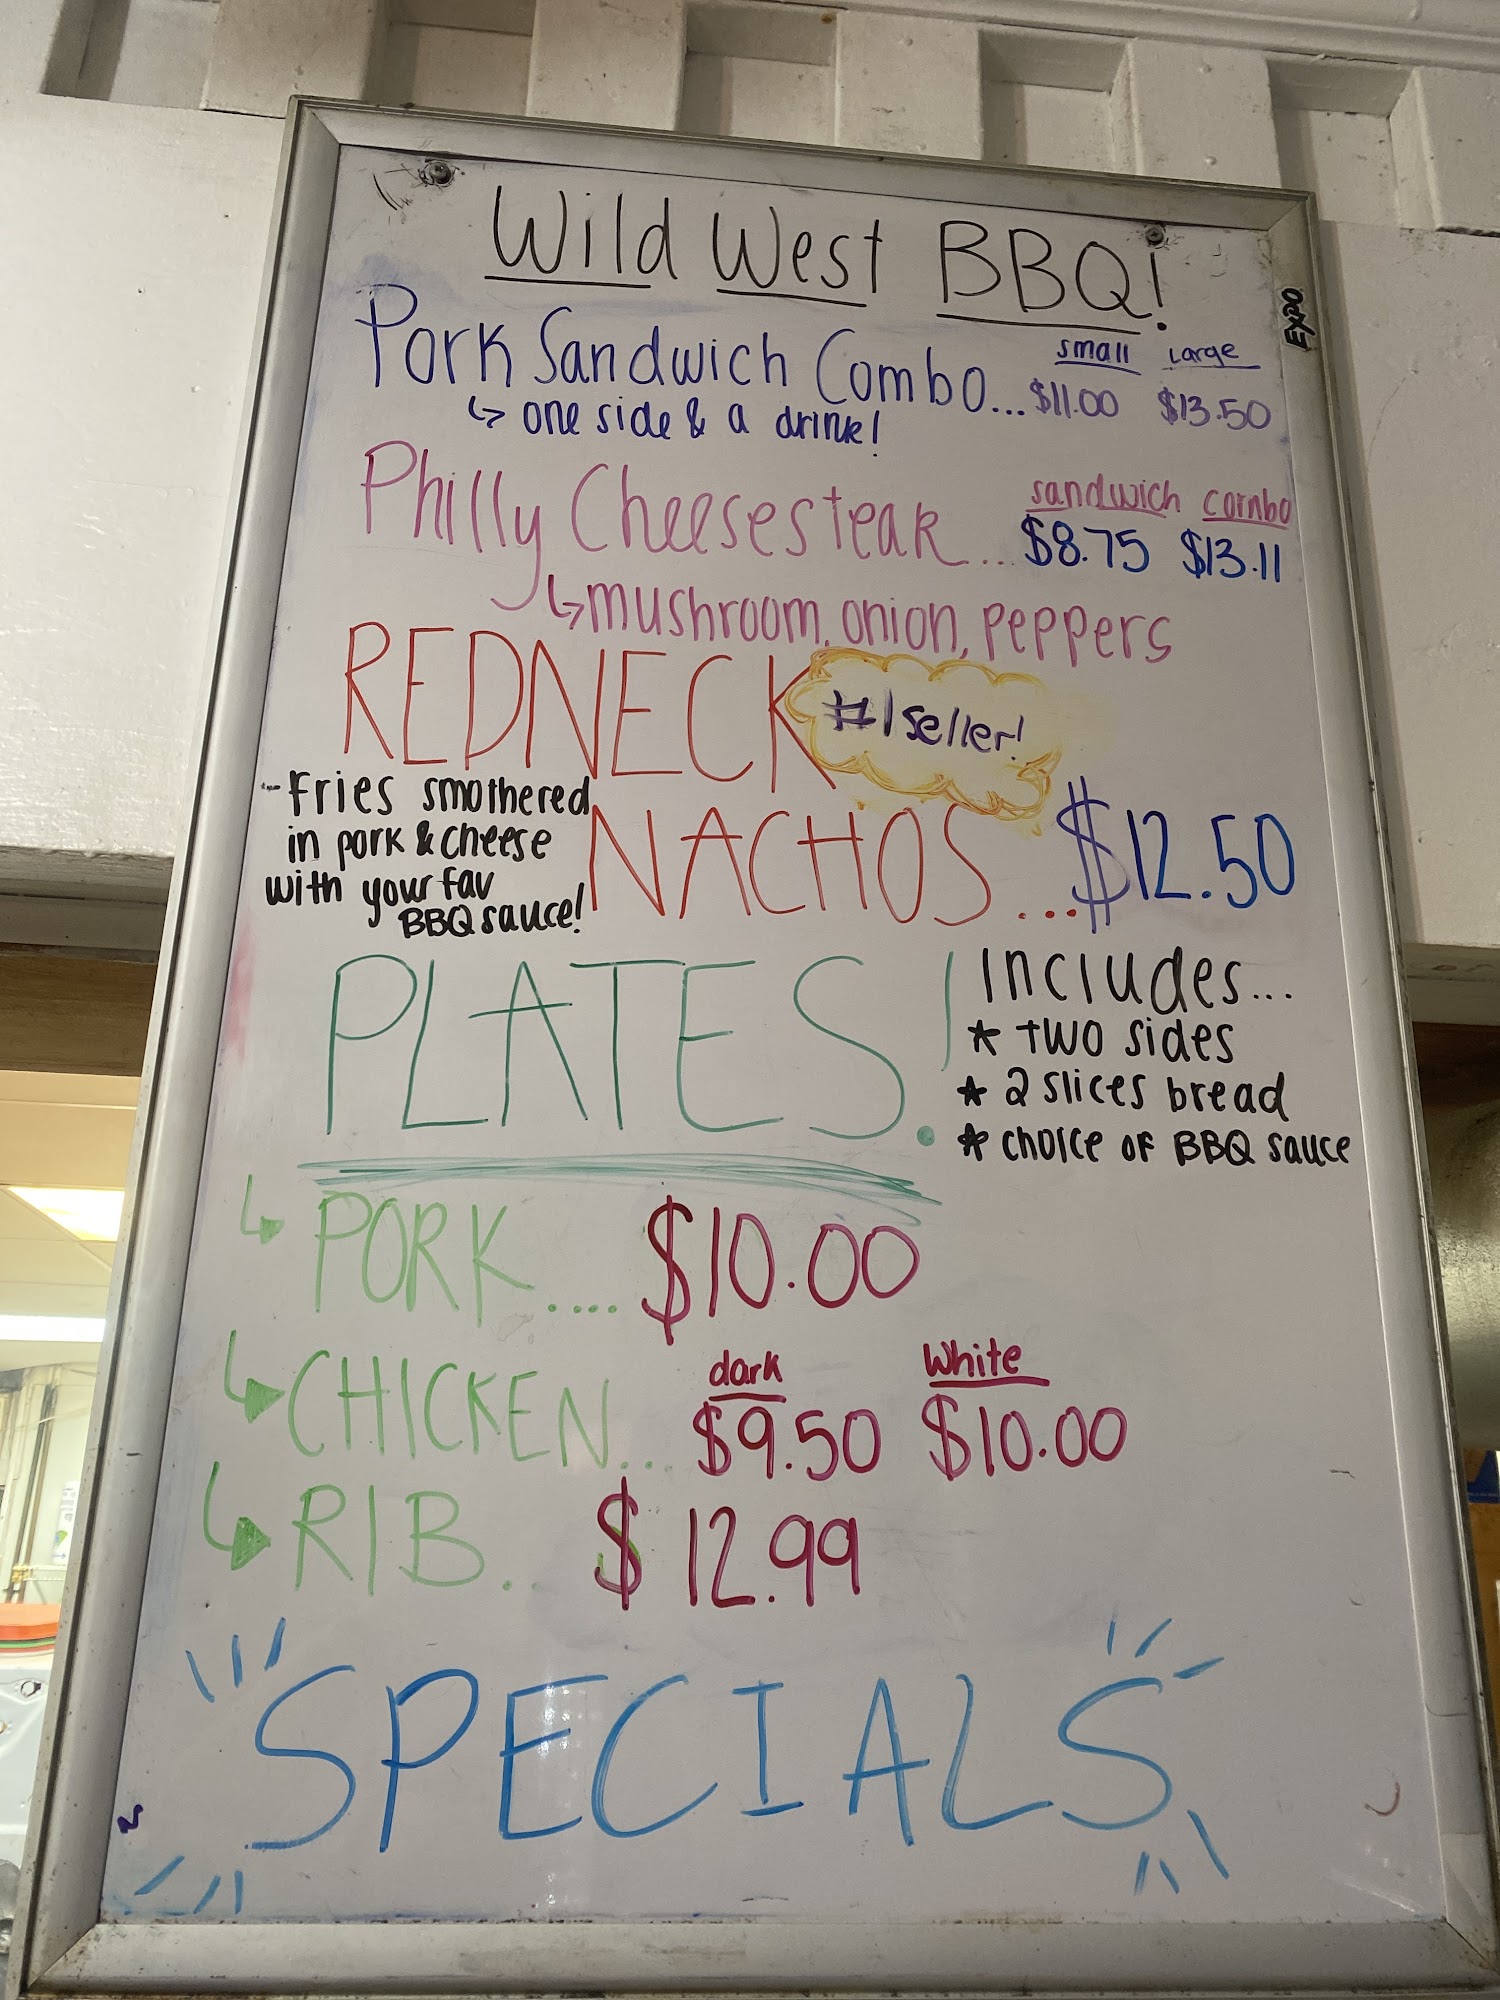 Wild West BBQ!
EXPO
small Large
Pork Sandwich Combo... $11.00 $13.50
↳ one side & a drink!
sandwich combo
Philly Cheesesteak... $8.75 $13.11
↳ mushroom, onion, peppers
REDNECK
#1 seller!
NACHOS... $12.50
- Fries smothered
in pork & cheese
with your fav
BBQ sauce!
PLATES!
Includes...
* two sides
* 2 slices bread
* choice of BBQ sauce
↳ PORK.... $10.00
dark white
↳ CHICKEN... $9.50 $10.00
↳ RIB.. $12.99
SPECIALS